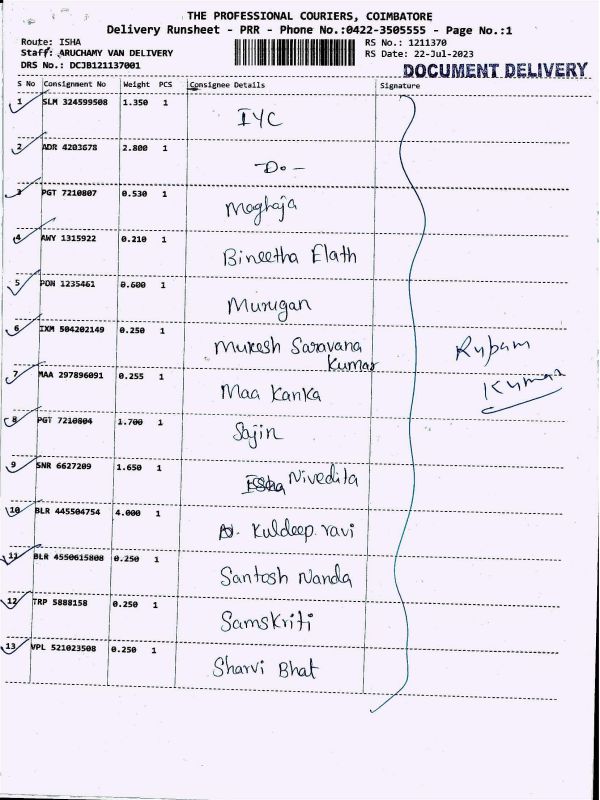 THE PROFESSIONAL COURIERS, COIMBATORE
Delivery Runsheet - PRR - Phone No.:0422-3505555 - Page No.:1
Route: ISHA RS No.: 1211370
Staff: ARUCHAMY VAN DELIVERY RS Date: 22-Jul-2023
DRS No.: DCJB121137001 DOCUMENT DELIVERY
S No Consignment No Weight PCS Consignee Details Signature
1 SLM 324599508 1.350 1 IYC
2 ADR 4203678 2.800 1 -Do-
3 PGT 7210807 0.530 1 Moghaja
4 AWY 1315922 0.210 1 Bineetha Elath
5 PON 1235461 0.600 1 Murugan
6 IXM 504202149 0.250 1 Mukesh Saravana
Kumar
Rupam
Kumar
7 MAA 297896091 0.255 1 Maa Kanka
8 PGT 7210804 1.700 1 Sajin
9 SNR 6627209 1.650 1 Nivedita
10 BLR 445504754 4.000 1 Kuldeep ravi
11 BLR 4550615808 0.250 1 Santosh Nanda
12 TRP 5888158 0.250 1 Samskriti
13 VPL 521023508 0.250 1 Sharvi Bhat